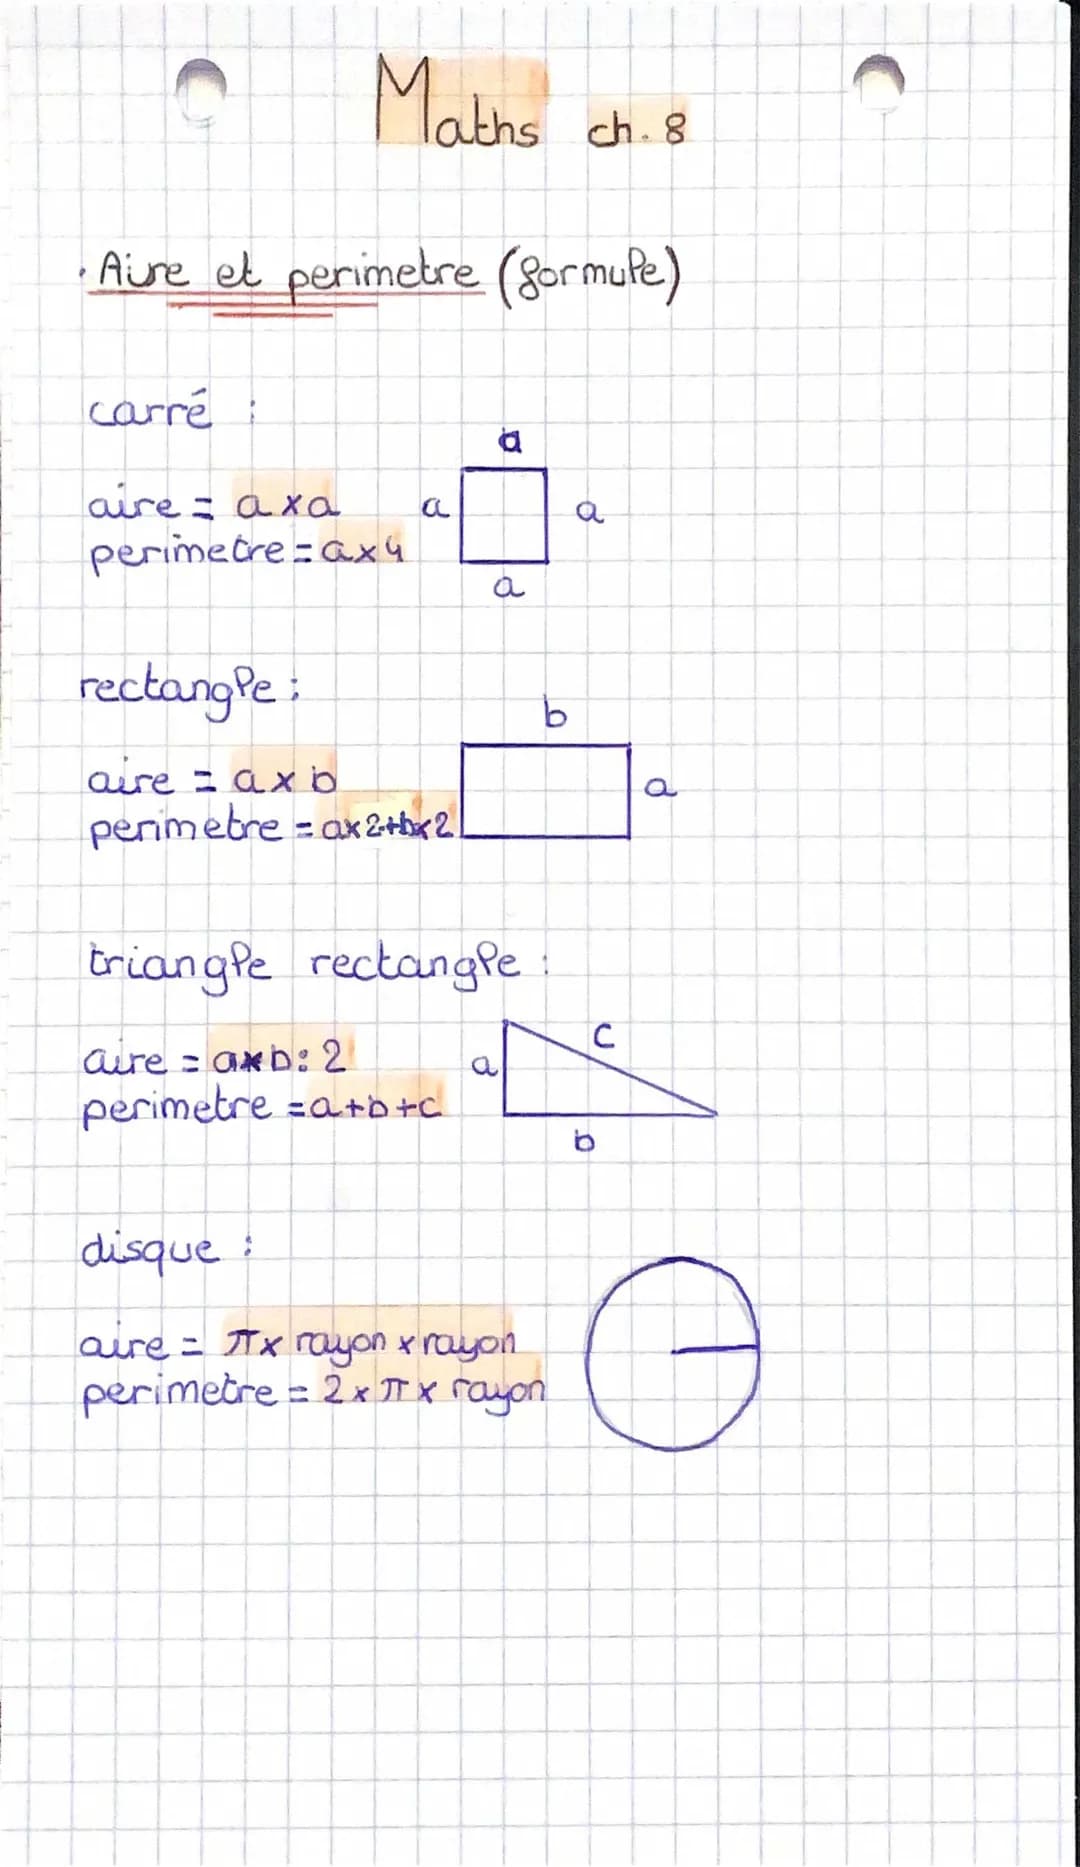 Maths ch. 8
· Aire et perimetre (formule)
carré :
a
aire = a x a
a
a
perimetre = a x 4
a
rectangle :
b
aire = a x b
a
perimetre = ax2+bx2
triangle rectangle :
c
aire = axb: 2
a
perimetre = a+b+c
b
disque :
aire = π x rayon x rayon
perimetre = 2 x π x rayon